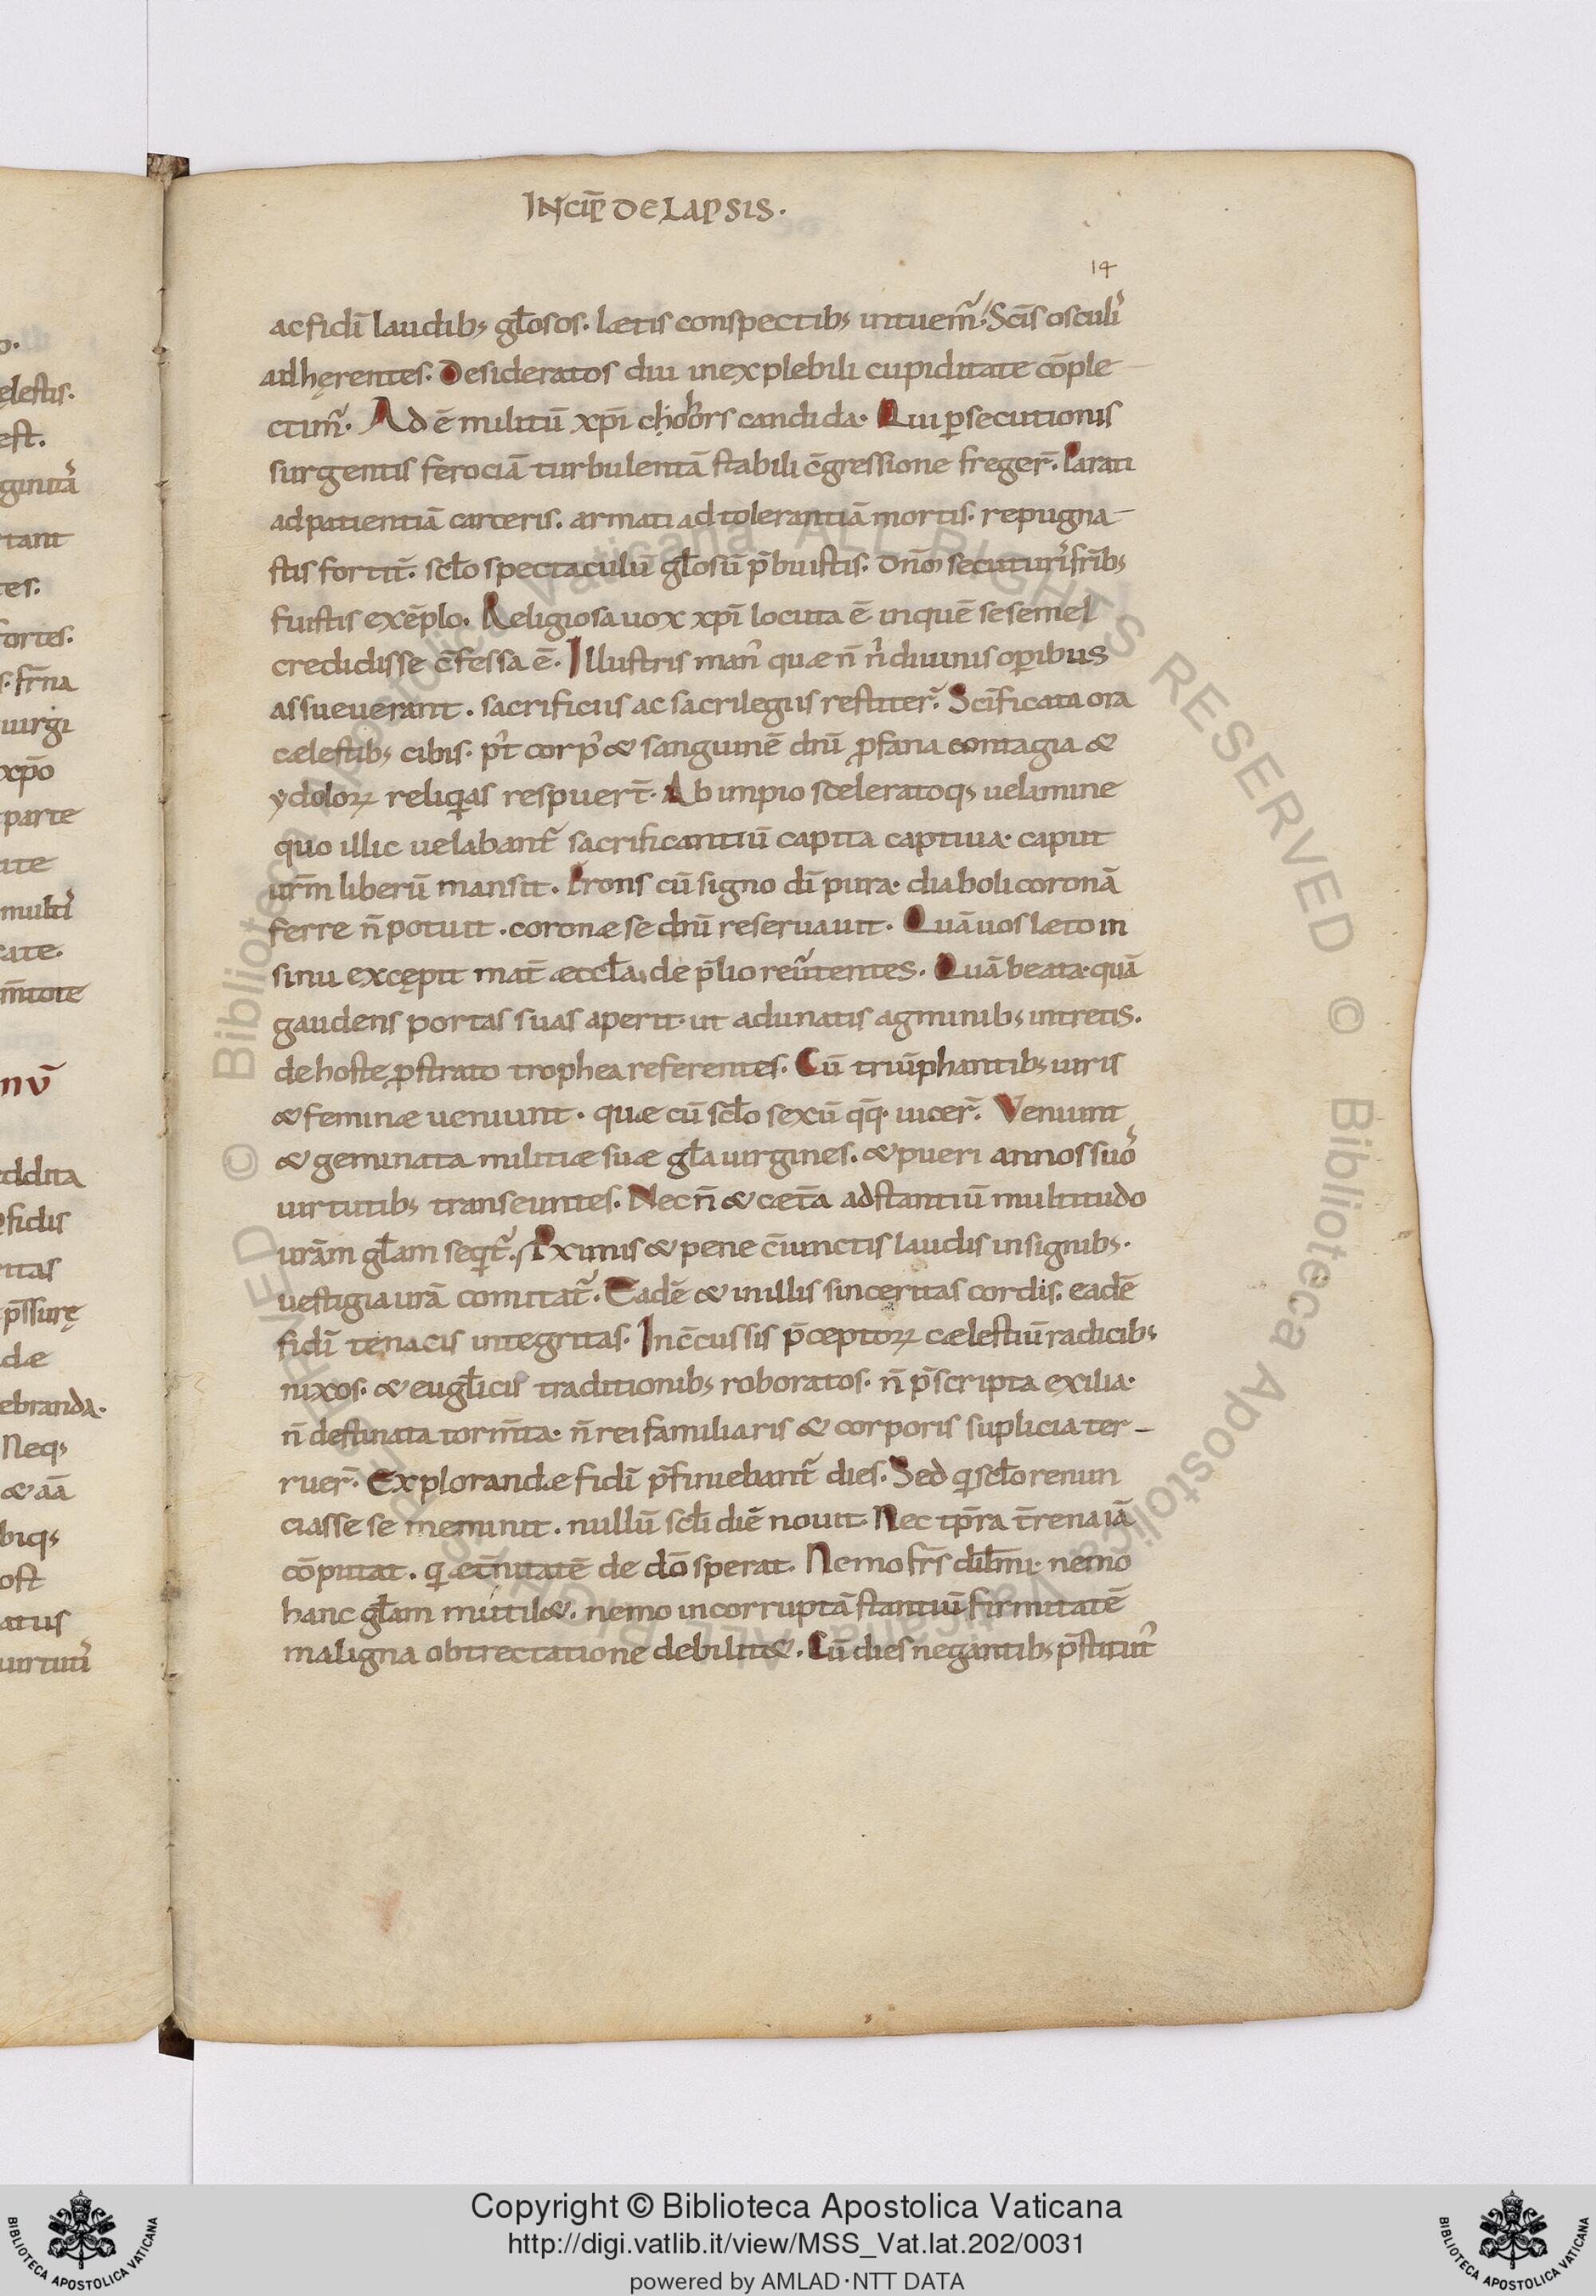 INCIP̄ DE LAPSIS.
14
ac fidī laudib; gl̄osos. lætis conspectib; intuem̃. Sc̄is osculı᾽
adhęrentes. Desideratos diu inexplebili cupiditate cōple-
ctim̃. Adē militū xp̄i chohors candida. Qui ꝑsecutionis
surgentis ferociā turbulentā stabili c̄gressione freger̃. Parati
ad patientiā carceris. armati ad tolerantiā mortis. repugna-
stis fortit̃. sc̄lo spectaculū gl̄osū p̄buistis. dn̄o secuturı᾽ fr̄ib;
fuistis exēplo. Religiosa uox xp̄i locuta ē in quē se semel
credidisse c̄fessa ē. Illustris man᾽ quæ n̄ n᾽ diuinis oꝑibus
assueuerant. sacrificiis ac sacrilegiis restiter̃. Sc̄ificata ora
cælestib; cibis. p᾽t corp᾽ & sanguinē dn̄i ꝓfana contagia &
ydoloꝝ reliq̇as respuer̄t. Ab impio sceleratoq; uelamine
quo illic uelabant̃ sacrificantiū capita captiua. caput
ur̄m liberū mansit. Frons cū signo dī pura. diaboli coronā
ferre n̄ potuit. coronæ se dn̄i reseruauit. Quā uos læto in
sinu excępit mat̄ æccl̄a, de p̄lio reũtentes. Quā beata. quā
gaudens portas suas aperit. ut adunatis agminib; intretis.
de hoste ꝓstrato trophea referentes. Cū triūphantib; uiris
& feminæ ueniunt. quæ cū sc̄lo sexū qq̄. uicer̃. Veniunt
& geminata militiæ suæ gl̄a uirgines. & pueri annos suo᾽
uirtutib; transeuntes. Nec n̄ & cæt̄a adstantiū multitudo
urā̄m gl̄am seqt̃. Ꝓximis & pene c̄iunctis laudis insignib;.
uestigia urā̄ comitat̃. Eadē & in illis sinceritas cordis. eadē
fidī tenacis integritas. Inc̄cussis p̄ceptoꝝ cælestiū radicib;
nixos. & eugl̄icis traditionib; roboratos. n̄ p̄scripta exilia.
n̄ destinata torm̄ta. n̄ rei familiaris & corporis suplicia ter-
ruer̃. Explorandæ fidī p̄finiebant̃ dies. Sed q̇ sc̄lo renun
ciasse se meminit. nullū sc̄li diē nouit. Nec tp̄ra t̄rena iā
cōputat. q̇ æt̄nitatē de dō sperat. Nemo fr̄s dil̄mi. nemo
hanc gl̄am mutil&. nemo incorruptā stantiū firmitatē
maligna obtrectatione debilit&. Cū dies negantib; p̄stitut᾽
Copyright © Biblioteca Apostolica Vaticana
http://digi.vatlib.it/view/MSS_Vat.lat.202/0031
powered by AMLAD·NTT DATA